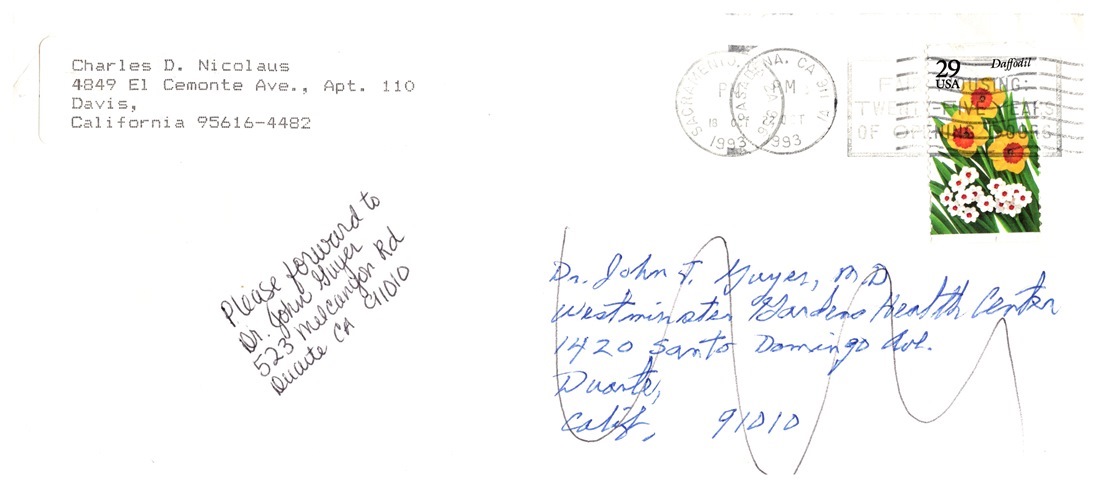 Charles D. Nicolaus
4849 El Cemonte Ave., Apt. 110
Davis,
California 95616-4482
SACRAMENTO,
PM
18 OCT
1993
PASADENA, CA 911
PM
OCT
1993
FAIR HOUSING:
TWENTY-FIVE YEARS
OF OPENING DOORS
29
USA
Daffodil
Please forward to
Dr. John Guyer
523 Melcanyon Rd
Duarte CA 91010
Dr. John T. Guyer, MD
Westminster Gardens Health Center
1420 Santo Domingo Ave.
Duarte,
Calif, 91010